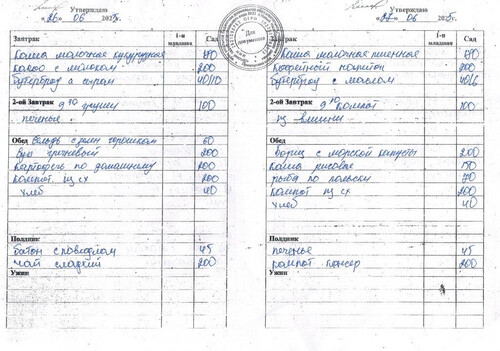 Утверждаю
«26» 06 2025г.
Завтрак
1-я младшая
Сад
каша молочная кукурузная 170
какао с молоком 200
бутерброд с сыром 40/10
2-ой Завтрак 9 30 груши 100
печенье
Обед сельдь с зелен. горошком 60
суп гречневый 200
картофель по домашнему 200
компот из сх 200
хлеб 40
Полдник
батон с повидлом 45
чай сладкий 200
Ужин
Утверждаю
«27» 06 2025г.
Завтрак
1-я младшая
Сад
каша молочная пшенная 170
кофейный напиток 200
бутерброд с маслом 40/6
2-ой Завтрак 9 30 компот 100
из вишни
Обед
борщ с морской капусты 200
каша рисовая 150
рыба по польски 70
компот из сх 200
хлеб 40
Полдник
печенье 45
200
Ужин
Для документов